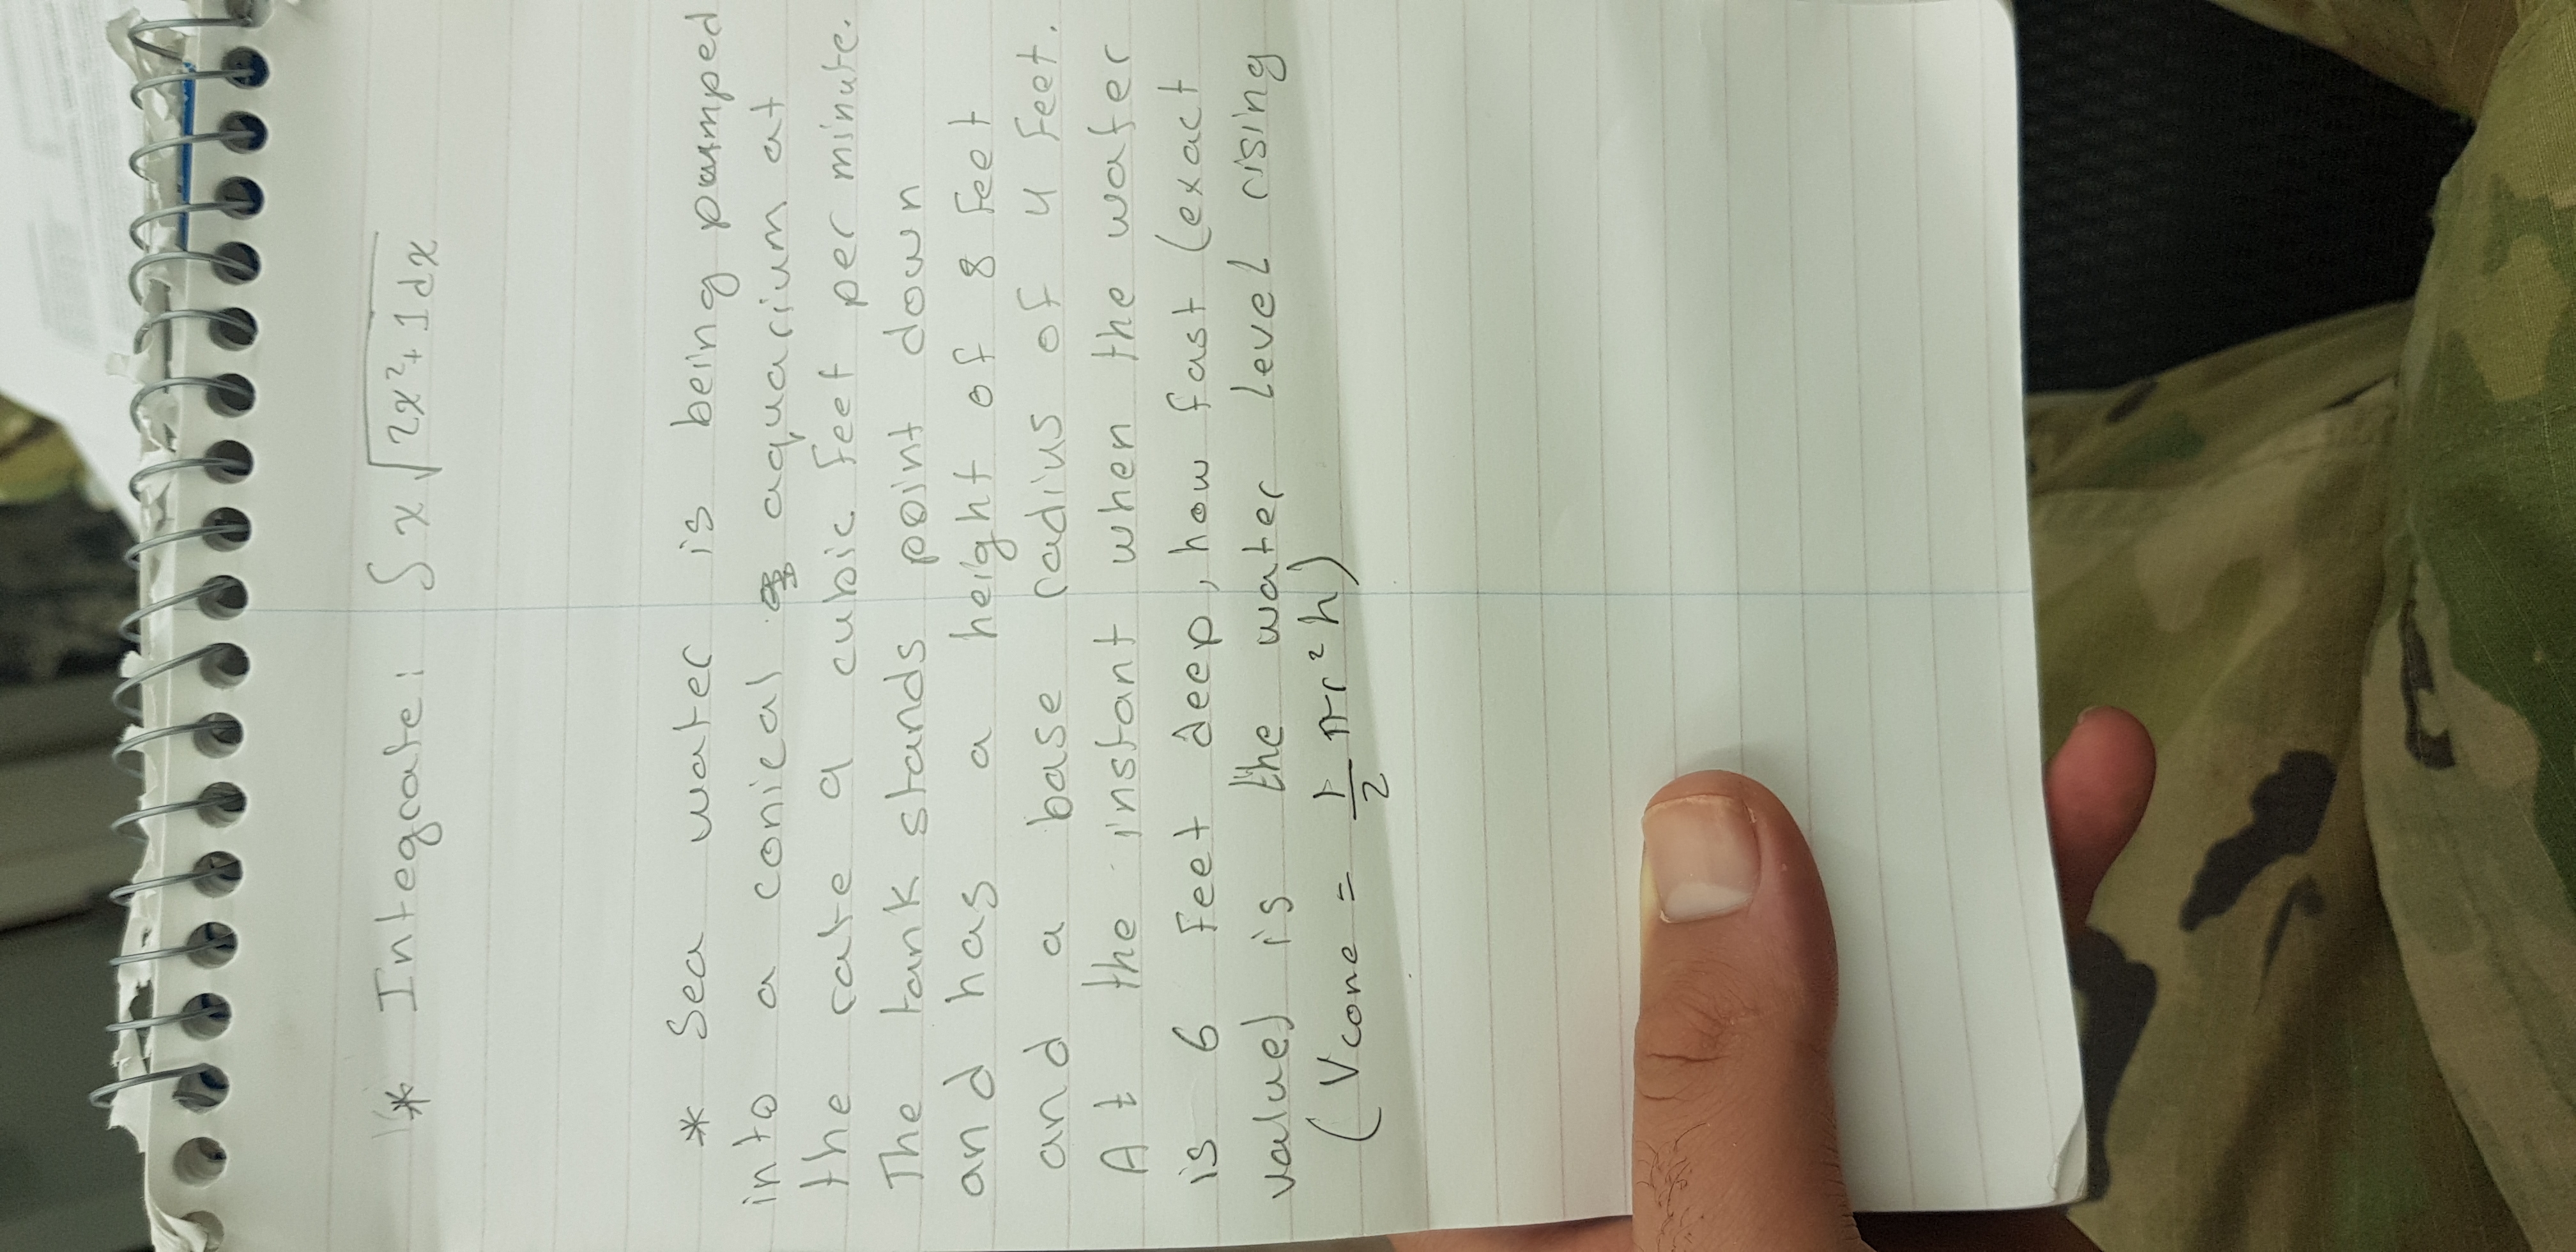 * Integrate: ∫ x √2x²+1 dx
* Sea water is being pumped
into a conical aquarium at
the rate a cubic feet per minute.
The tank stands point down
and has a height of 8 feet
and a base radius of 4 feet.
At the instant when the water
is 6 feet deep, how fast (exact
value) is the water level rising
(Vcone = 1/2 πr²h)